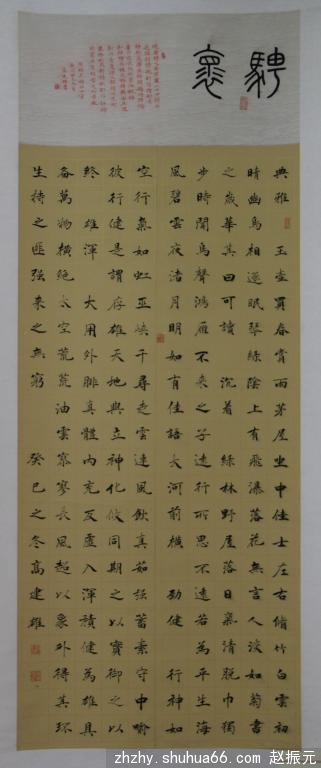 騁褱
典雅 玉壺買春賞雨茅屋坐中佳士左右脩竹白雲初
晴幽鳥相逐眠琴綠陰上有飛瀑落花無言人淡如菊書
之歲華其曰可讀 沉着 綠林野屋落日氣清脫巾獨
步時聞鳥聲鴻雁不來之子遠行所思不遠若為平生海
風碧雲夜渚月明如有佳語大河前橫 勁健 行神如
空行氣如虹巫峽千尋走雲連風飲真茹強蓄素守中喻
彼行健是謂存雄天地與立神化攸同期之以實御之以
終 雄渾 大用外腓真體內充反虛入渾積健為雄具
備萬物橫絕太空荒荒油雲寥寥長風超以象外得其環
生持之匪強來之無窮 癸巳之冬高建雄
zhzhy.shuhua66.com 赵振元